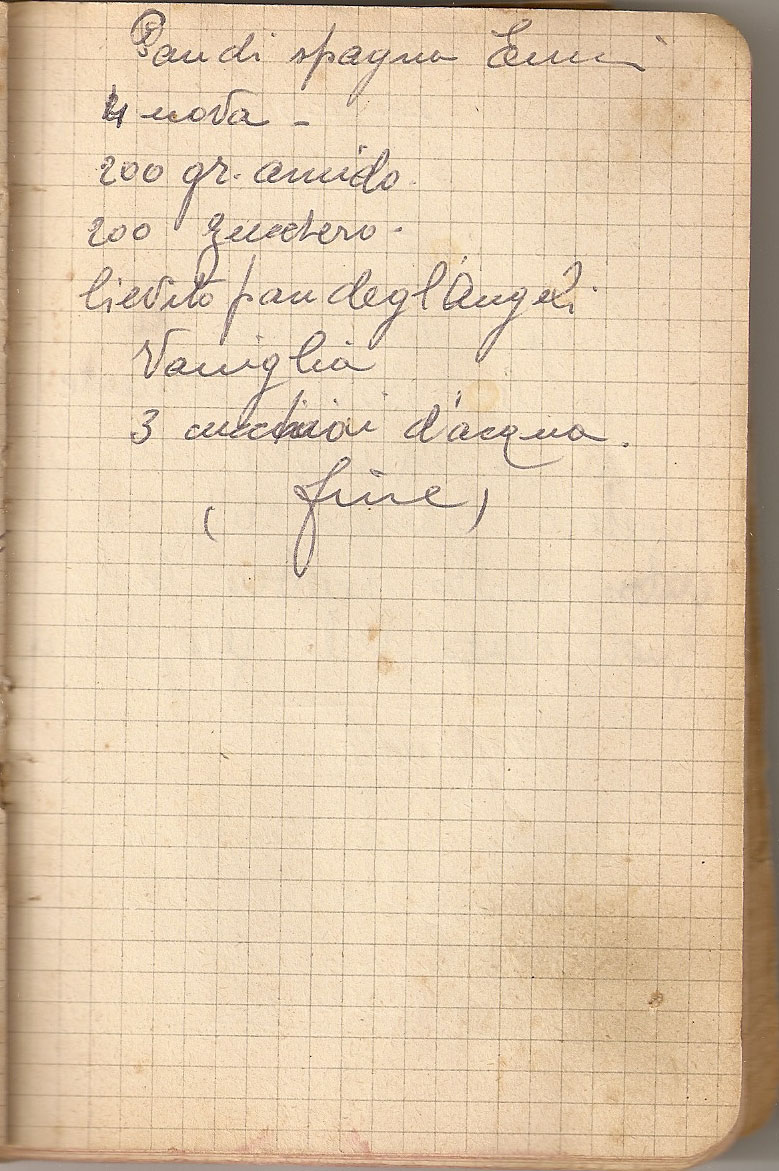 Pan di spagna Enni
4 uova -
200 gr. amido.
200 zucchero.
lievito pan degl'Angeli
Vaniglia
3 cucchiai d'acqua.
( fine )